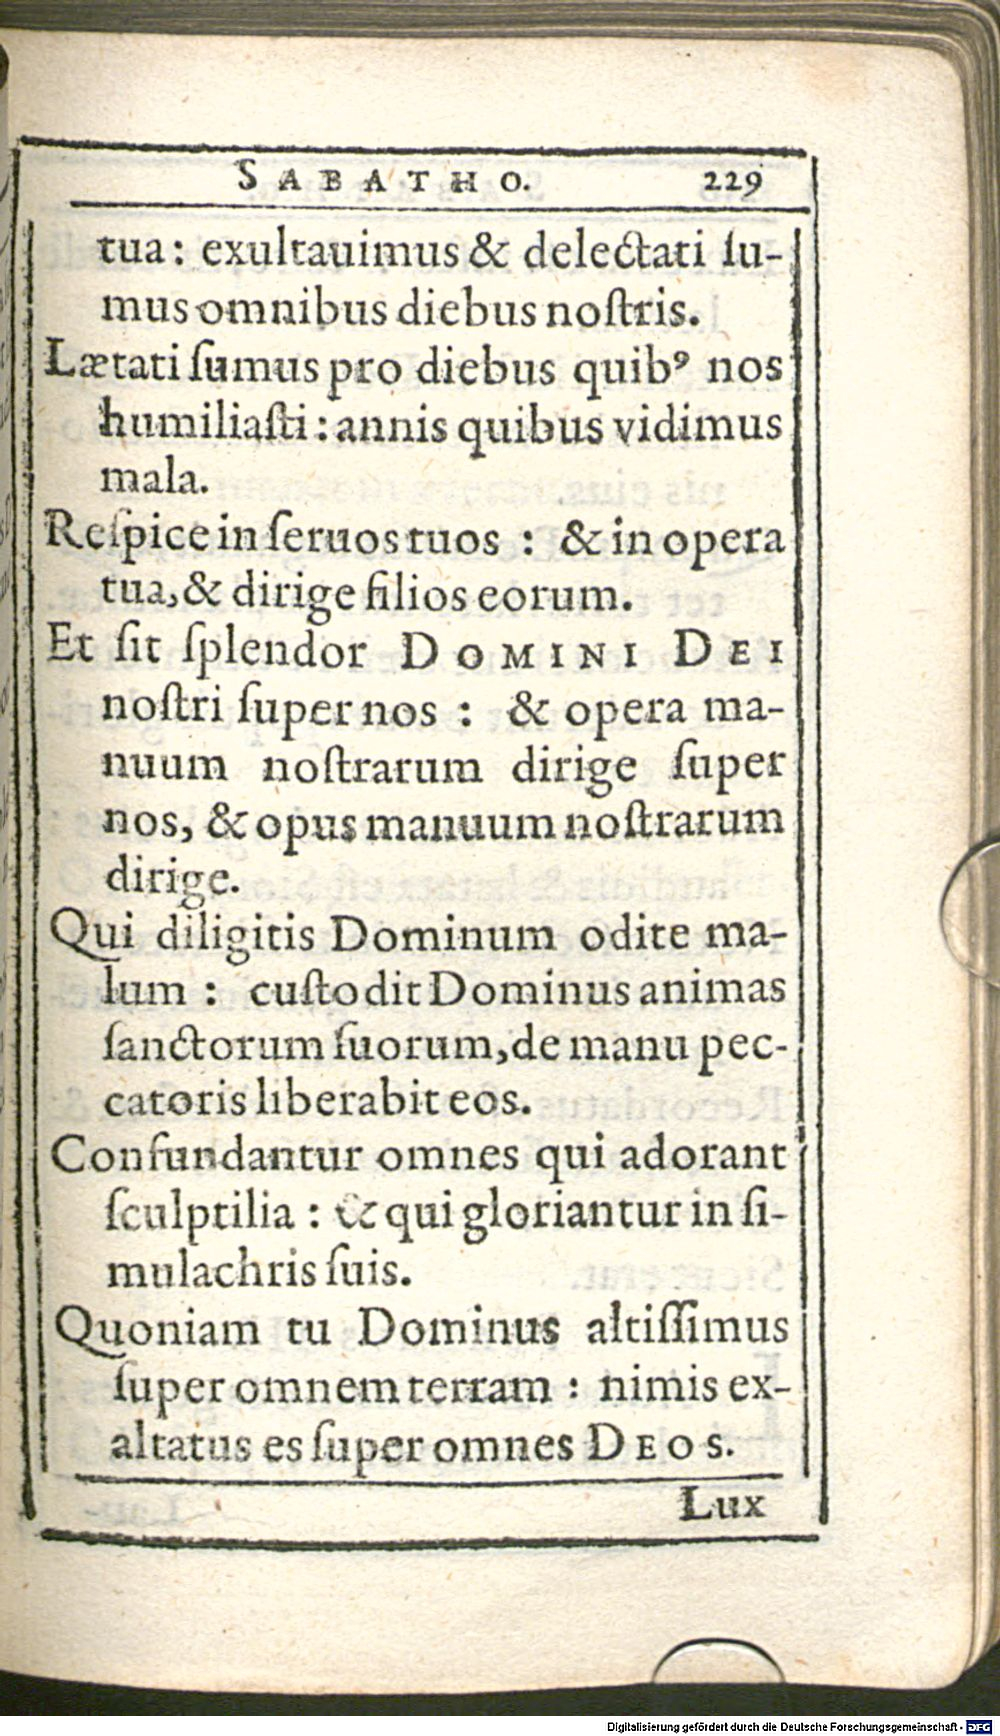 SABATHO. 229
tua: exultauimus & delectati ſu-
mus omnibus diebus noſtris.
Lætati ſumus pro diebus quibꝰ nos
humiliaſti: annis quibus vidimus
mala.
Reſpice in ſeruos tuos : & in opera
tua, & dirige filios eorum.
Et ſit ſplendor DOMINI DEI
noſtri ſuper nos : & opera ma-
nuum noſtrarum dirige ſuper
nos, & opus manuum noſtrarum
dirige.
Qui diligitis Dominum odite ma-
lum : cuſtodit Dominus animas
ſanctorum ſuorum, de manu pec-
catoris liberabit eos.
Confundantur omnes qui adorant
ſculptilia : & qui gloriantur in ſi-
mulachris ſuis.
Quoniam tu Dominus altiſſimus
ſuper omnem terram : nimis ex-
altatus es ſuper omnes DEOS.
Lux
Digitalisierung gefördert durch die Deutsche Forschungsgemeinschaft - DFG